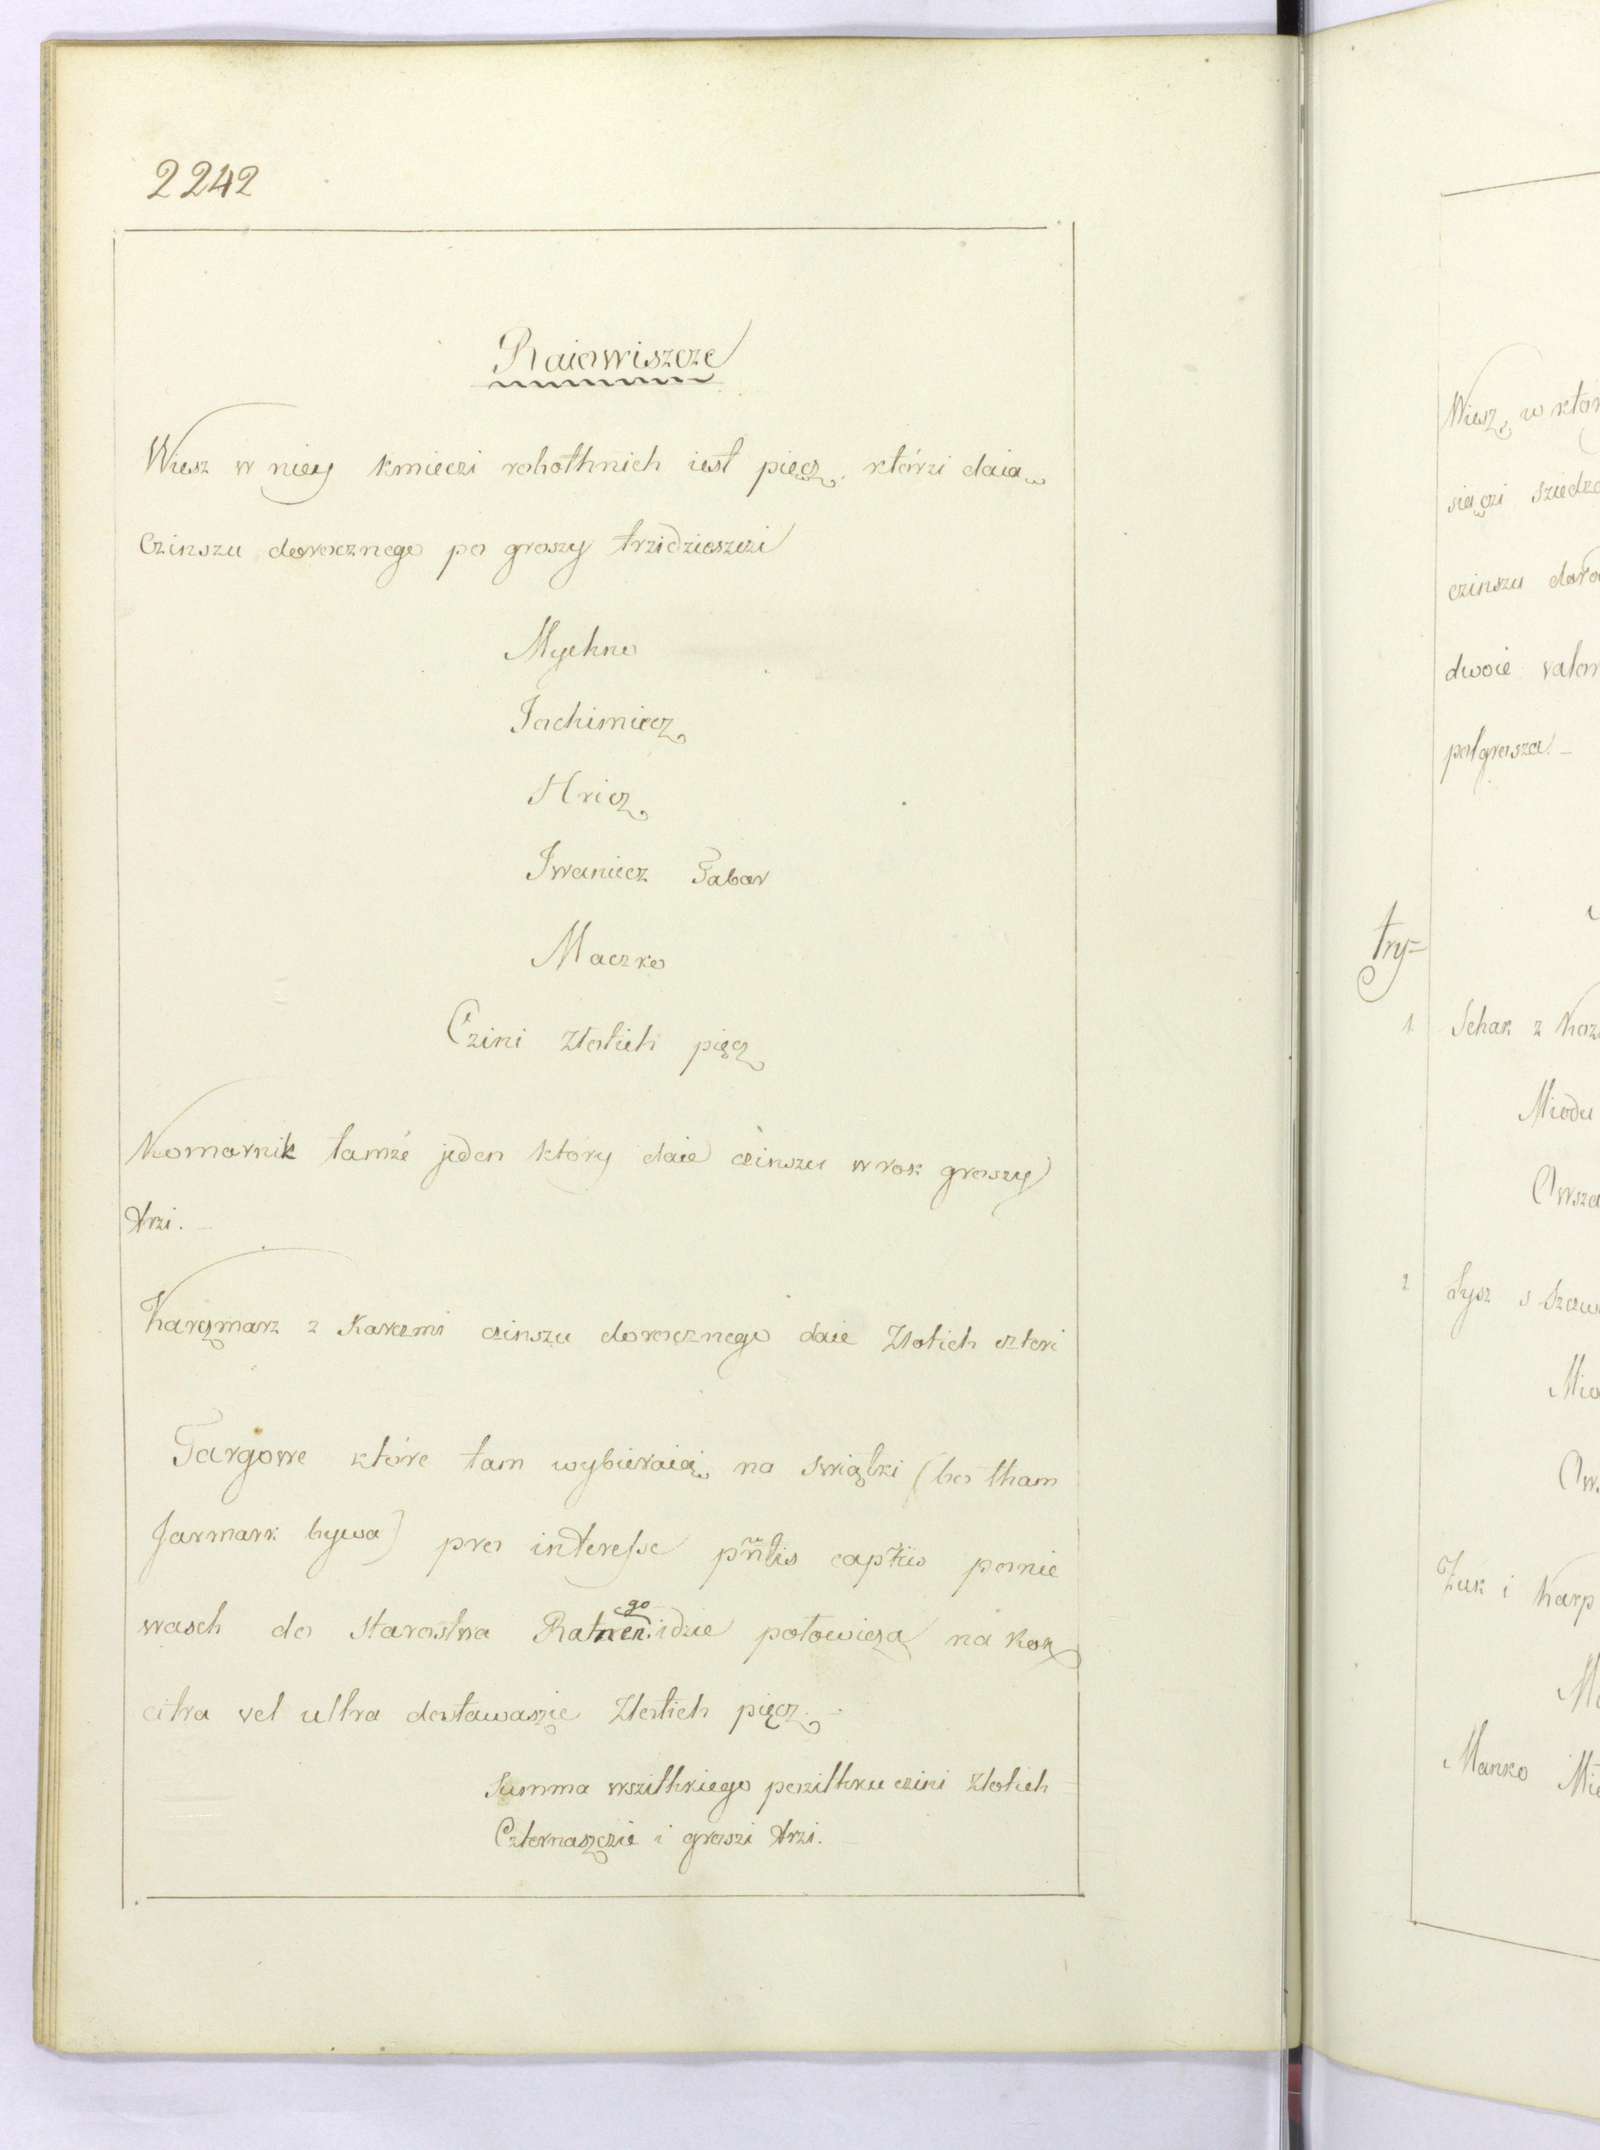 2242
Raiowiszcze
Wiesz w niey kmieczi robothnich iest pięcz. którzi daią
Czinszu dorocznego po groszy trzidzieszczi
Mychno
Jachimiecz
Hricz
Iwaniecz Tabor
Maczko
Czini złotich pięcz
Komarnik tamże jeden ktory daie czinszu w rok groszy
trzi. –
Karczmarz z Karczmi czinszu dorocznego daie Złotich czteri
Targowe które tam wybieraią na swiątki (bo tham
Jarmark bywa) pro interesse pñtis captio ponie
wasch do starostwa Ratnen.go idzie połowicza na Rok
citra vel ultra dostawaszię Złotich pięcz. –
Summa wszithkiego pozithku czini złotich
Czternaszczie i groszi trzi. –
Wiesz, w któr
siączi sziedz
czinszu doro
dwoie
połgrosza –
try=
1 Sehak z Koz
Miodu
Owsza
2 Łysz s
Mio
Ow
Zuk i Karp
Manko